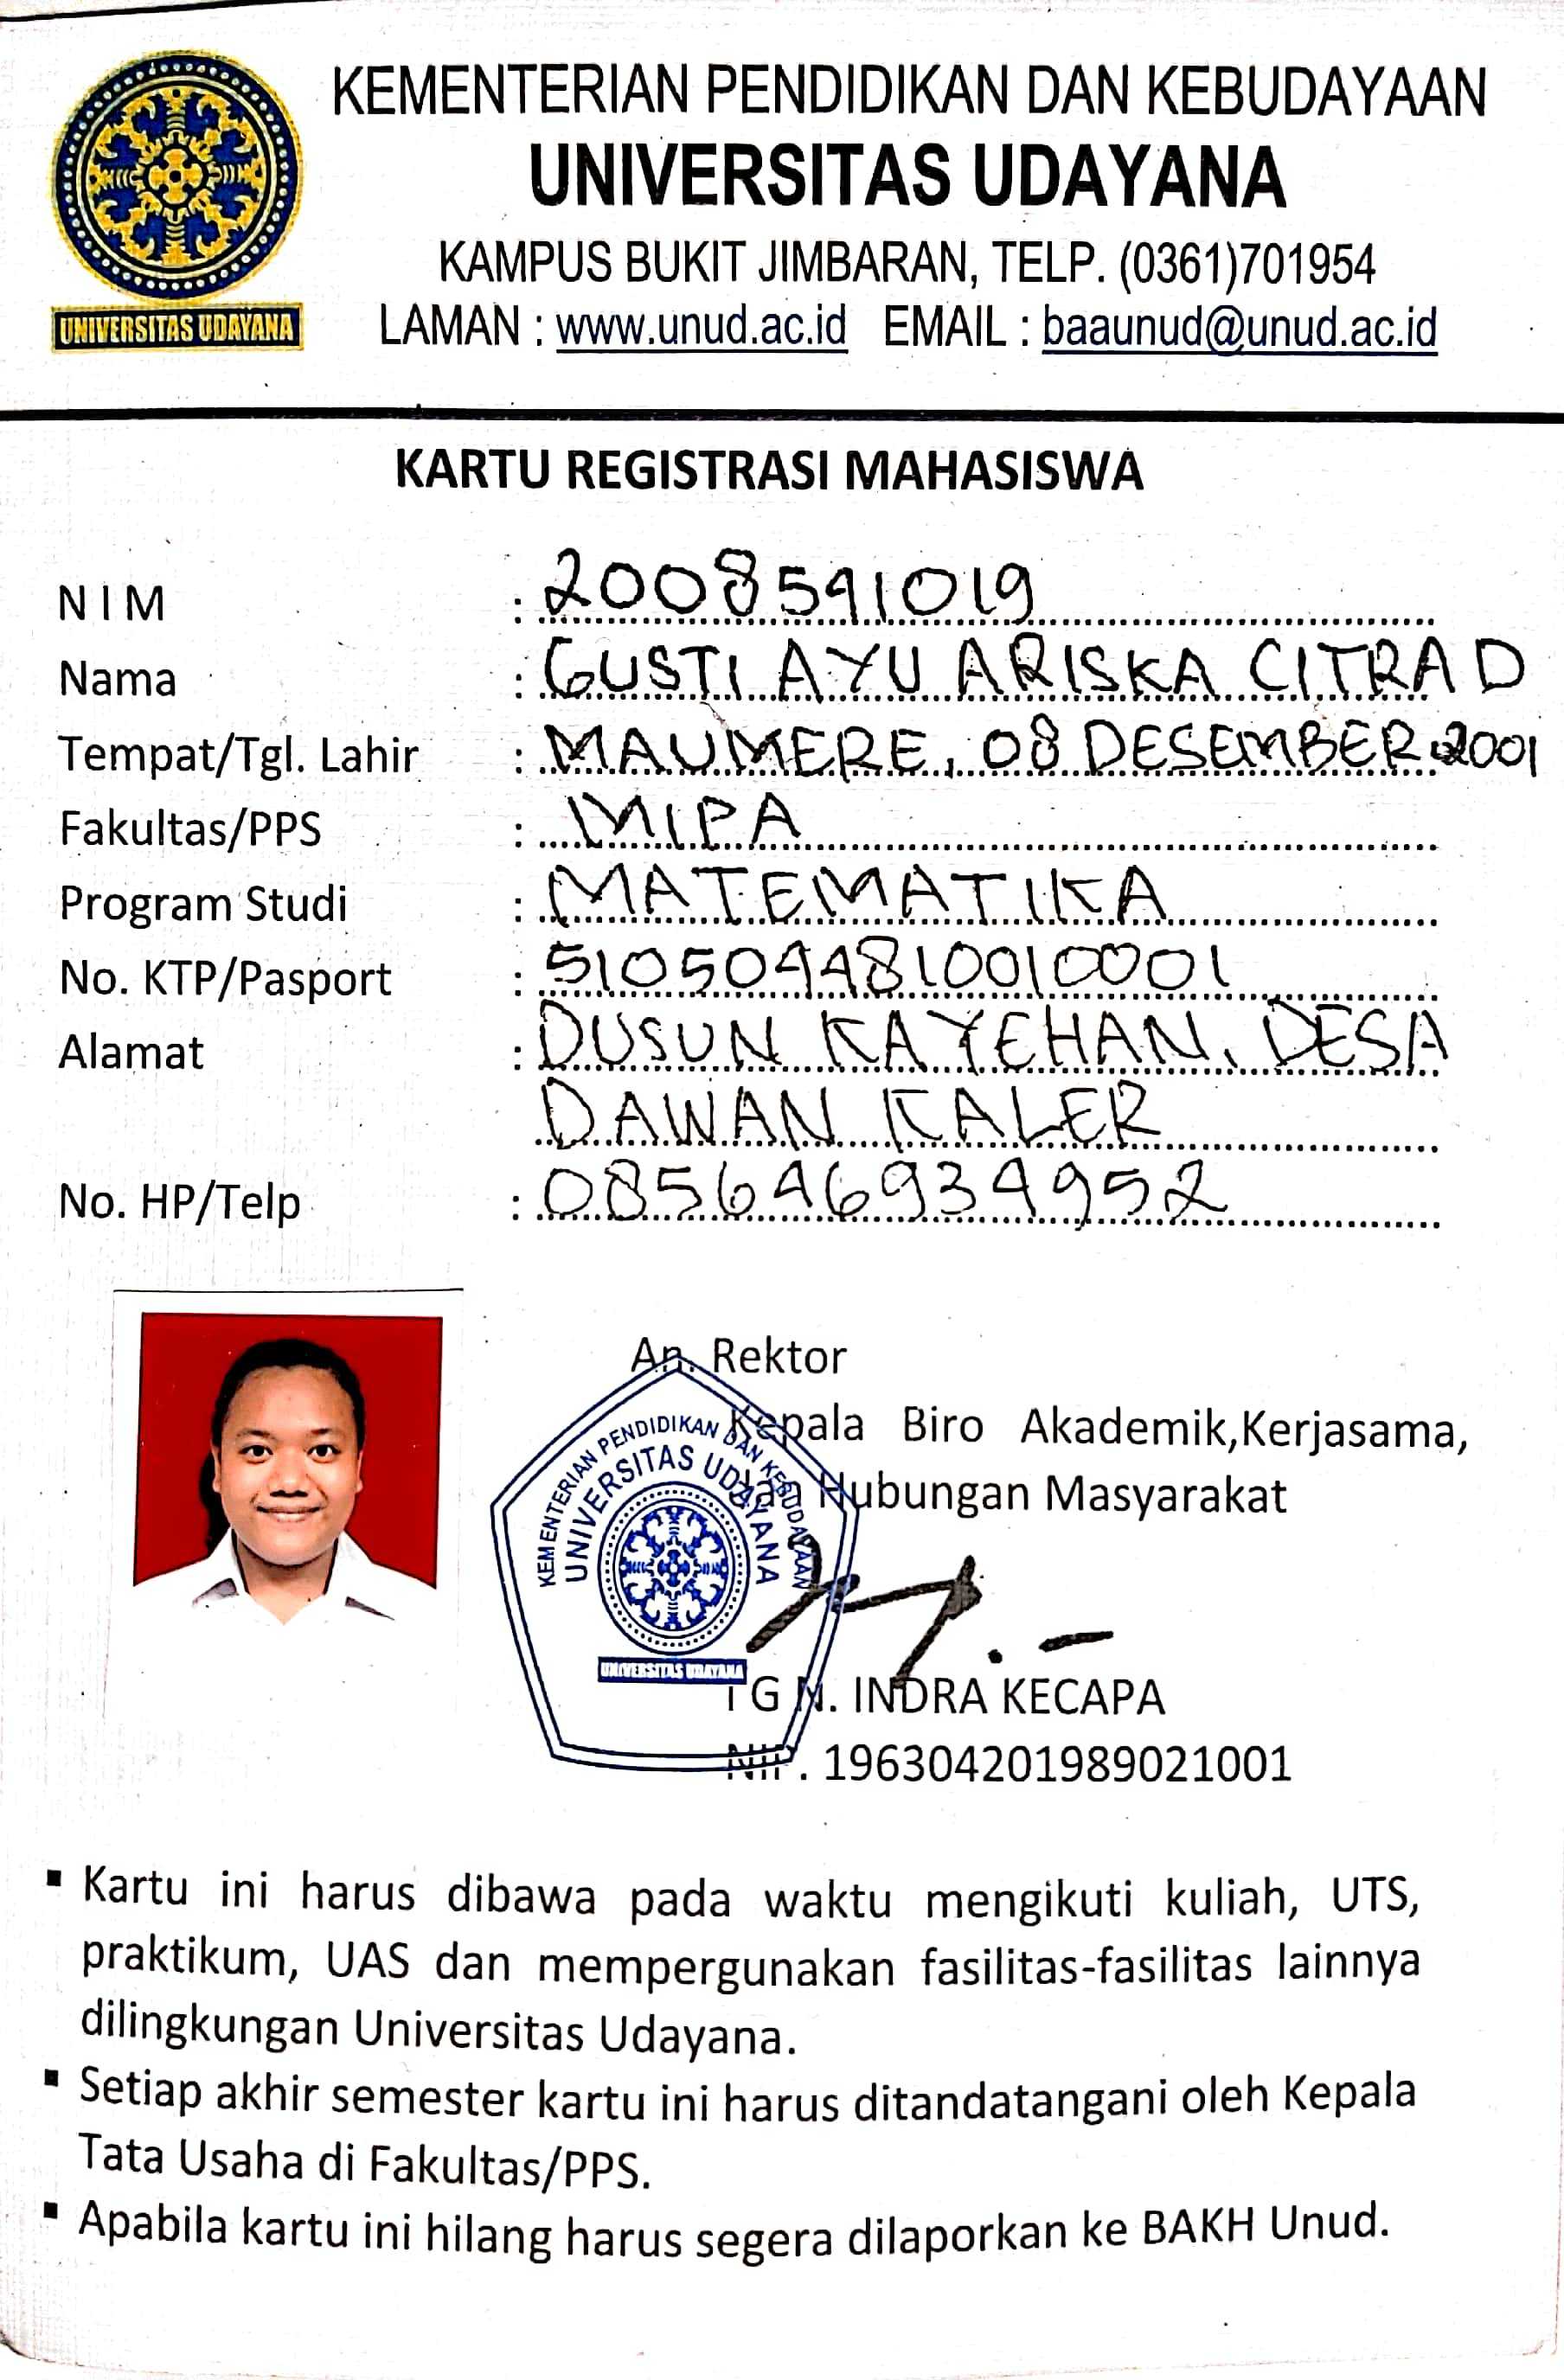 KEMENTERIAN PENDIDIKAN DAN KEBUDAYAAN
UNIVERSITAS UDAYANA
KAMPUS BUKIT JIMBARAN, TELP. (0361)701954
LAMAN : www.unud.ac.id EMAIL : baaunud@unud.ac.id
UNIVERSITAS UDAYANA
KARTU REGISTRASI MAHASISWA
NIM : 2008541019
Nama : GUSTI AYU ARISKA CITRA D
Tempat/Tgl. Lahir : MAUMERE, 08 DESEMBER 2001
Fakultas/PPS : MIPA
Program Studi : MATEMATIKA
No. KTP/Pasport : 5105044810010001
Alamat : DUSUN KAYEHAN, DESA
DAWAN KALER
No. HP/Telp : 085646934952
An. Rektor
Kepala Biro Akademik,Kerjasama,
dan Hubungan Masyarakat
KEMENTERIAN PENDIDIKAN DAN KEBUDAYAAN
UNIVERSITAS UDAYANA
UNIVERSITAS UDAYANA
I G N. INDRA KECAPA
NIP. 196304201989021001
▪ Kartu ini harus dibawa pada waktu mengikuti kuliah, UTS,
praktikum, UAS dan mempergunakan fasilitas-fasilitas lainnya
dilingkungan Universitas Udayana.
▪ Setiap akhir semester kartu ini harus ditandatangani oleh Kepala
Tata Usaha di Fakultas/PPS.
▪ Apabila kartu ini hilang harus segera dilaporkan ke BAKH Unud.